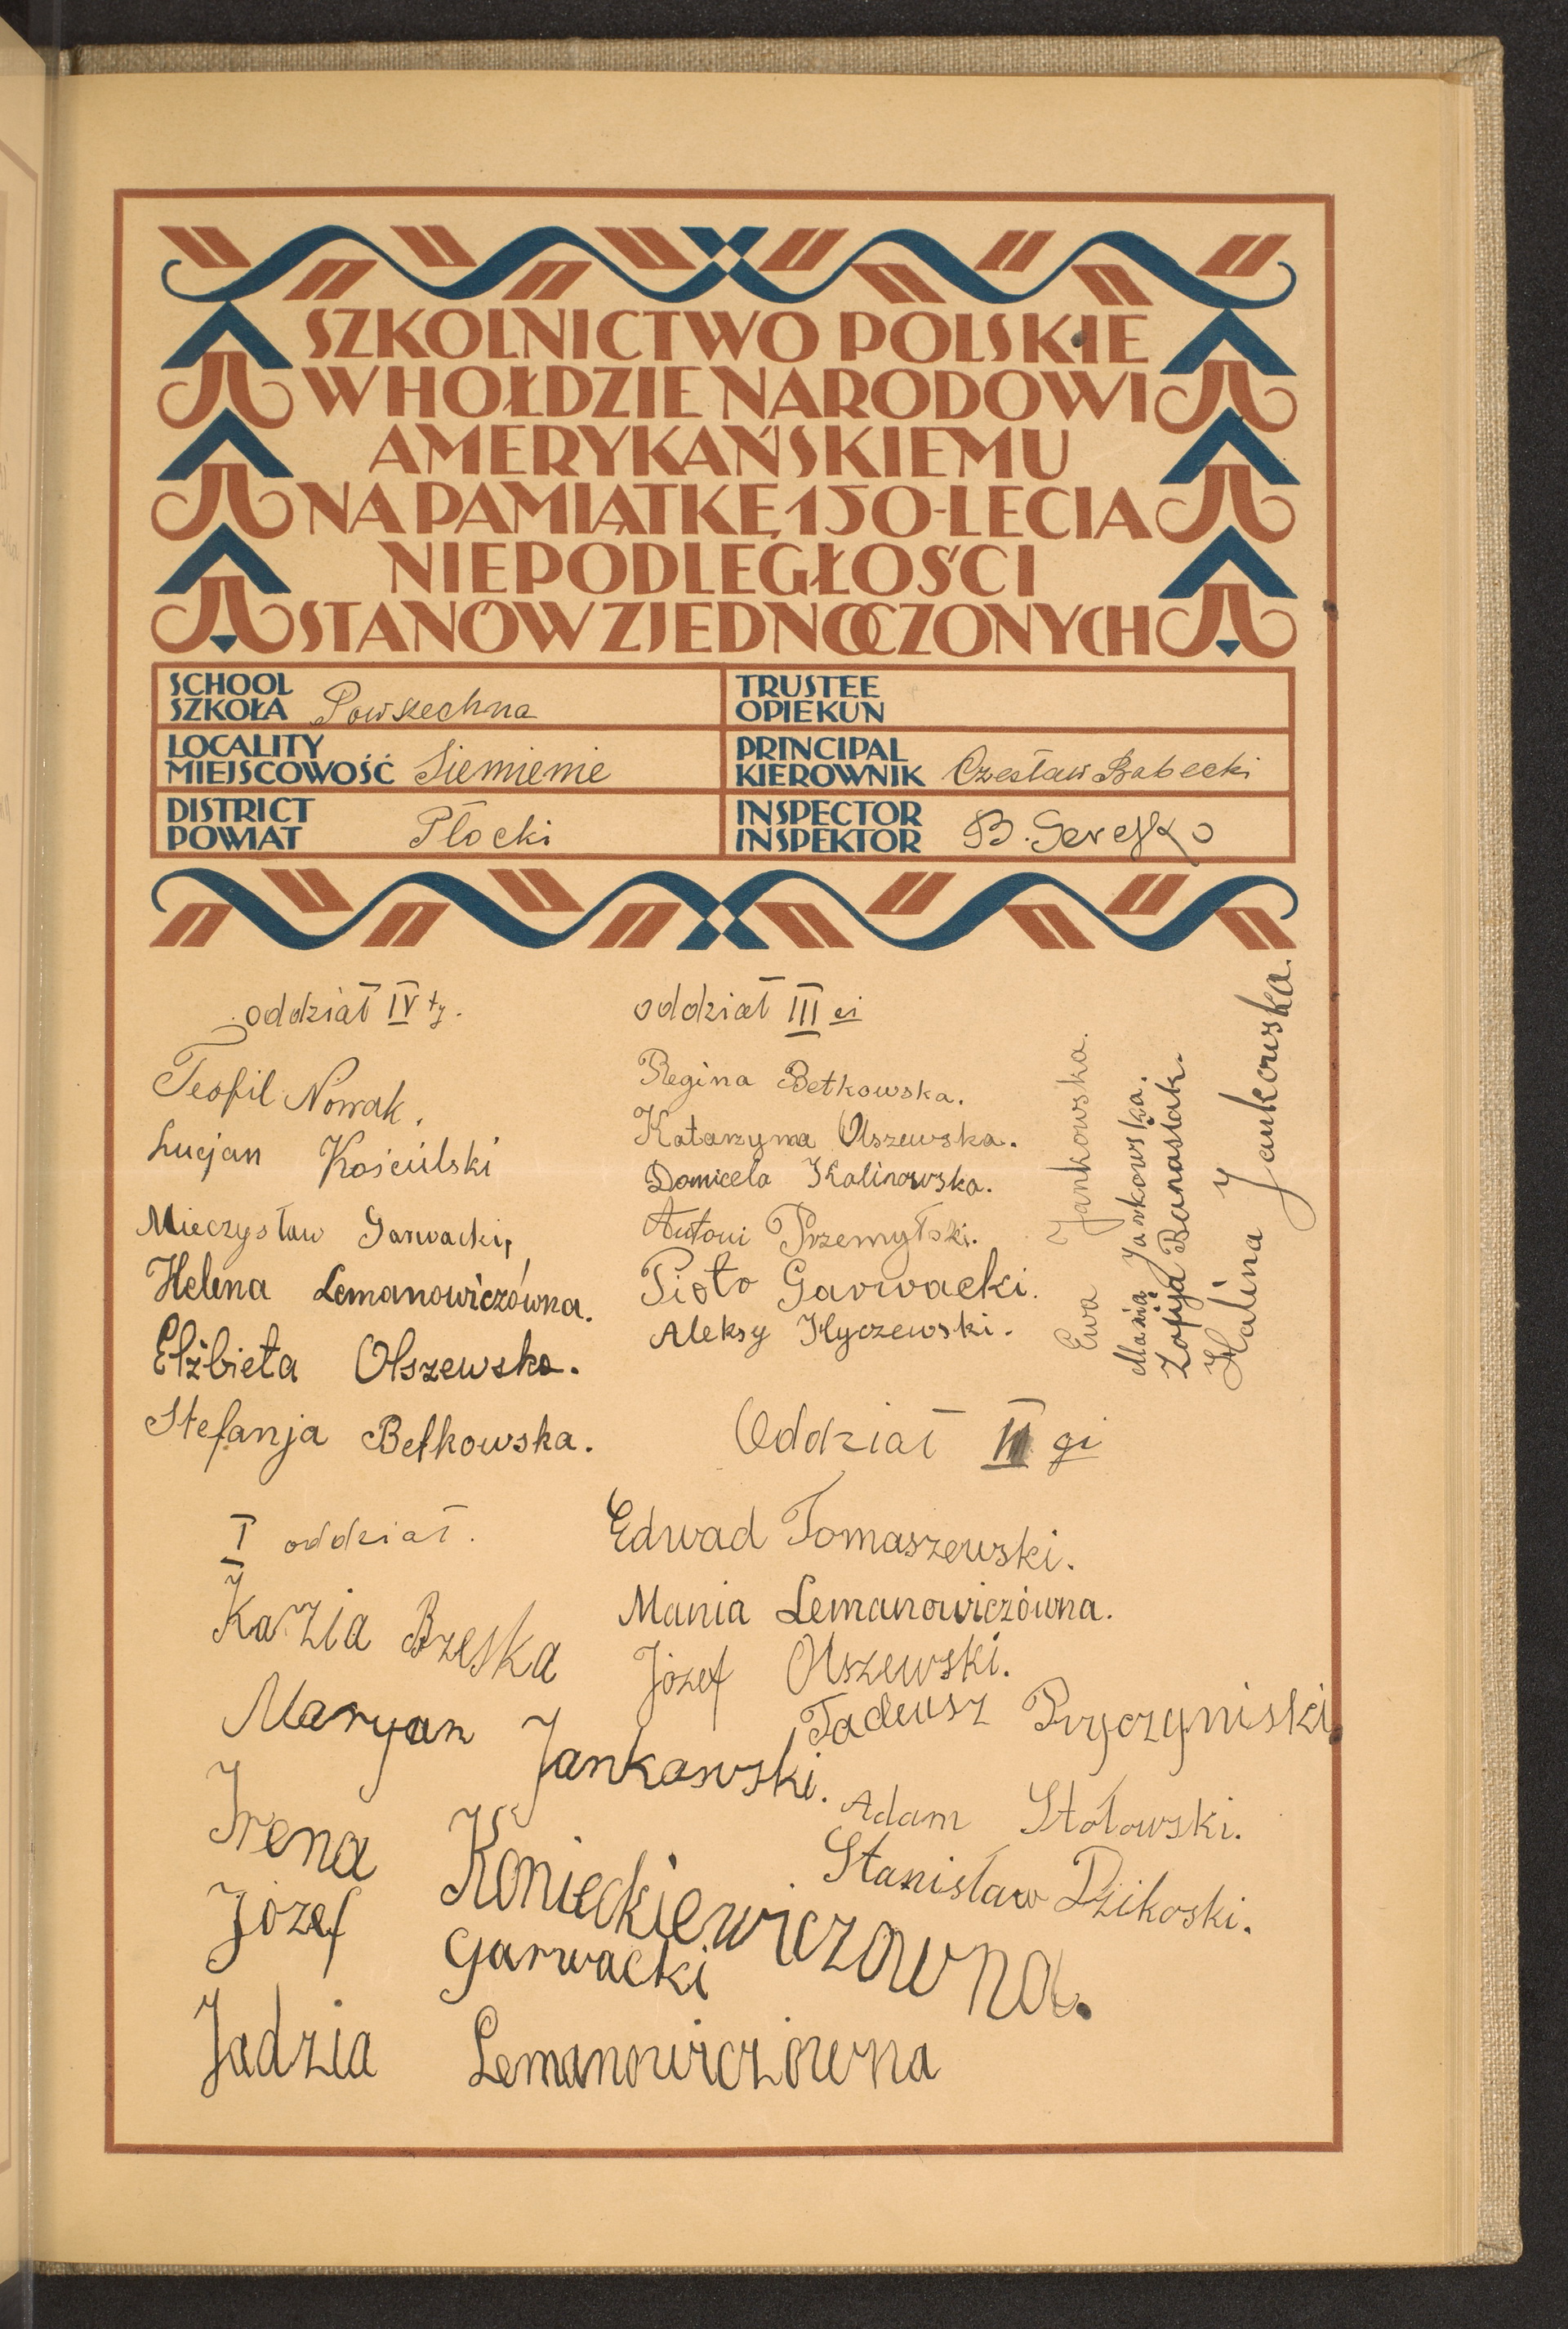 SZKOLNICTWO POLSKIE
W HOŁDZIE NARODOWI
AMERYKAŃSKIEMU
NA PAMIĄTKĘ 150-LECIA
NIEPODLEGŁOŚCI
STANÓW ZJEDNOCZONYCH
SCHOOL
SZKOŁA Powszechna
TRUSTEE
OPIEKUN
LOCALITY
MIEJSCOWOŚĆ Siemienie
PRINCIPAL
KIEROWNIK Czesław Babecki
DISTRICT
POWIAT Płocki
INSPECTOR
INSPEKTOR B.
oddział IV ty.
Teofil Nowak.
Lucjan Kościulski
Mieczysław Garwacki,
Helena Lemanowiczówna.
Elżbieta Olszewska.
Stefanja Betkowska.
oddział III ci
Regina Betkowska.
Katarzyna Olszewska.
Domicela Kalinowska.
Antoni Przemyłski.
Piotr Garwacki.
Aleksy Hyczewski.
Ewa Jankowska.
Mania Jankowska.
Zofija Banasiak.
Halina Jankowska.
Oddział II gi
Edwad Tomaszewski.
Mania Lemanowiczówna.
Józef Olszewski.
Tadeusz
Adam Stołowski.
Stanisław Dzikoski.
I oddział.
Kazia Bzeska
Maryan Jankowski.
Irena Konieckiewiczowna.
Józef Garwacki
Jadzia Lemanowiczówna